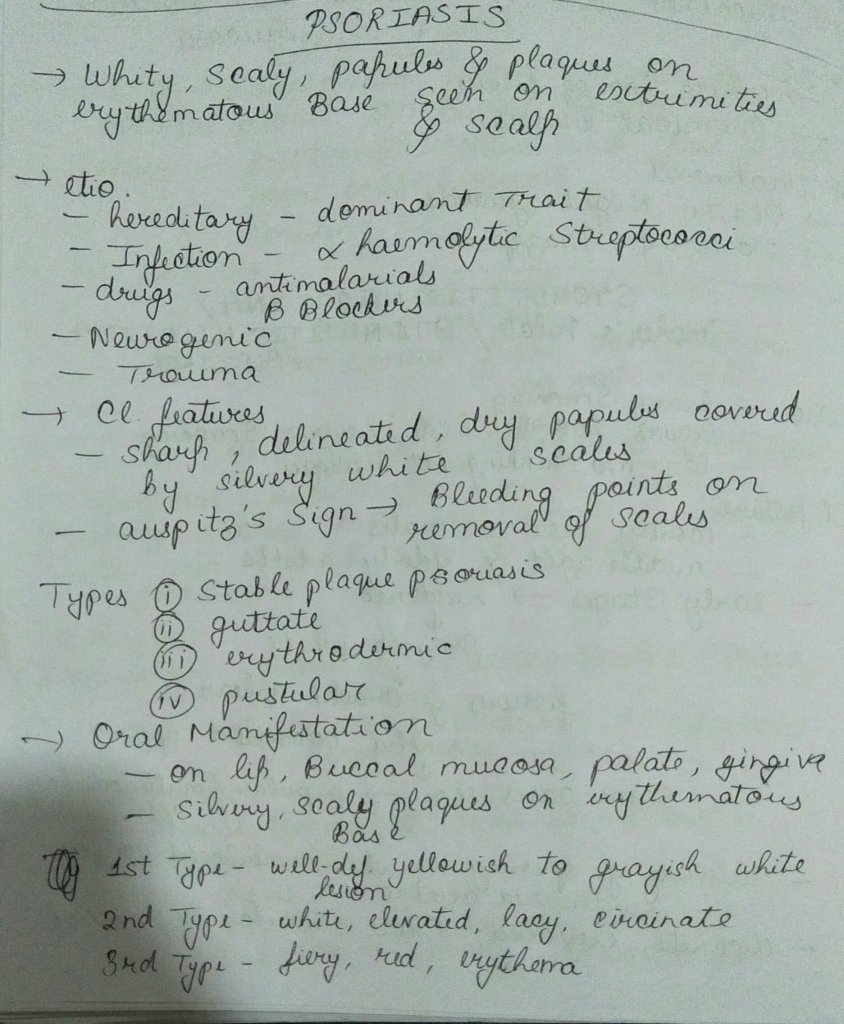 PSORIASIS
→ Whity, scaly, papules & plaques on
erythematous Base seen on extrimities
& scalp
→ etio.
– hereditary – dominant Trait
– Infection – α haemolytic Streptococci
– drugs – antimalarials
β Blockers
– Neurogenic
– Trauma
→ Cl. features
– sharp, delineated, dry papules covered
by silvery white scales
– auspitz's sign → Bleeding points on
removal of scales
Types (i) Stable plaque psoriasis
(ii) guttate
(iii) erythrodermic
(iv) pustular
→ Oral Manifestation
– on lip, Buccal mucosa, palate, gingiva
– Silvery, scaly plaques on erythematous
Base
1st Type – well-def. yellowish to grayish white
lesion
2nd Type – white, elevated, lacy, circinate
3rd Type – fiery, red, erythema